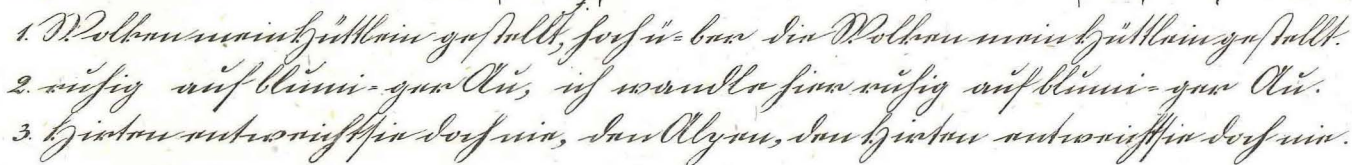 1. Wolken mein Hüttlein gestellt, hoch ü=ber die Wolken mein Hüttlein gestellt.
2. ruhig auf blumi=ger Au, ich wandle hier ruhig auf blumi=ger Au.
3. Hirten entweicht sie doch nie, den Alpen, den Hirten entweicht sie doch nie.